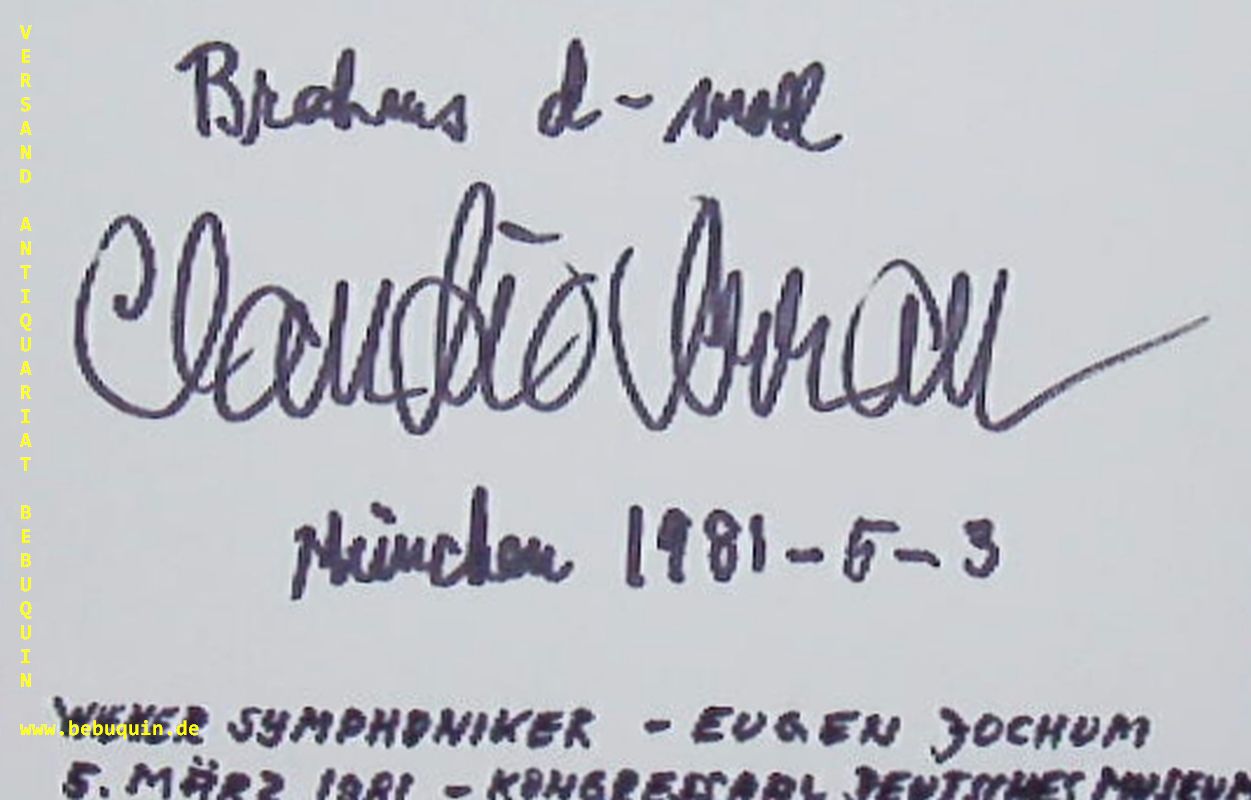 Brahms d-moll
Claudio Arrau
München 1981-5-3
WIENER SYMPHONIKER - EUGEN JOCHUM
5. MÄRZ 1981 - KONGRESSAAL DEUTSCHES MUSEUM
VERSAND ANTIQUARIAT BEBUQUIN
www.bebuquin.de